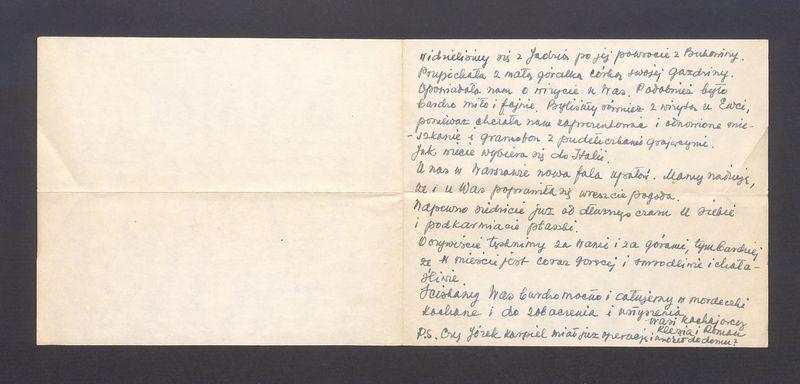 Widzieliśmy się z Jadzią po jej powrocie z Bukowiny.
Przyjechała z małą góralką córką swojej gaździny.
Opowiadała nam o wizycie u Was. Podobnież było
bardzo miło i fajnie. Byliśmy również z wizytą u Ewci,
ponieważ chciała nam zaprezentować i odnowione mie-
-szkanie i gramofon z pudełeczkami grającymi.
Jak wiecie wybiera się do Italii.
U nas w Warszawie nowa fala upałów. Mamy nadzieję,
że i u Was poprawiła się wreszcie pogoda.
Napewno siedzicie już od dłuższego czasu u siebie
i podkarmiacie ptaszki.
Oczywiście tęsknimy za Wami i za górami, tym bardziej
że w mieście jest coraz goręcej i smrodliwie i hała-
śliwie.
Ściskamy Was bardzo mocno i całujemy w mordeczki
kochane i do zobaczenia i usłyszenia
Wasi kochający
i Roman
P.S. Czy Józek Karpiel miał już operację i wrócił do domu?